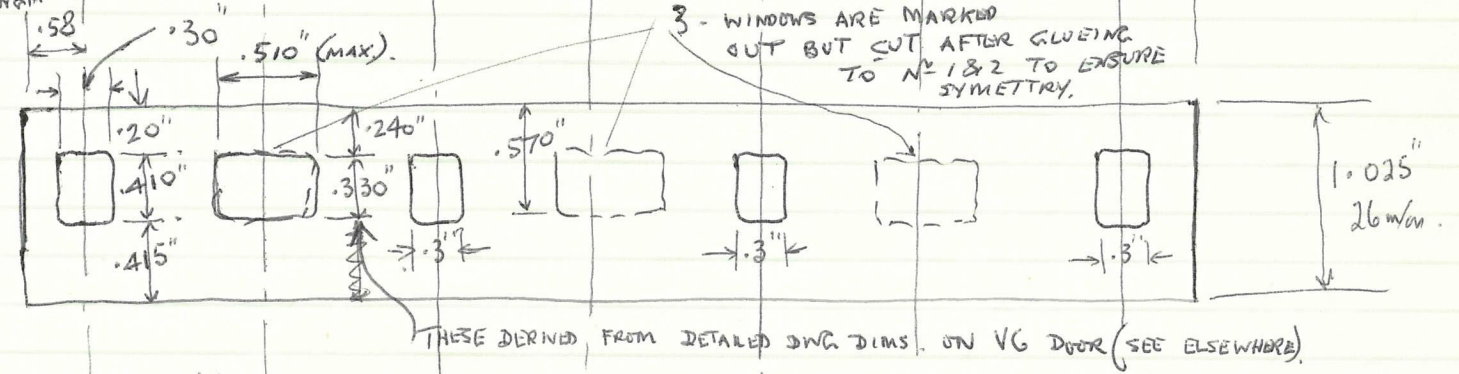 .58"
.30"
.510" (MAX).
3 - WINDOWS ARE MARKED
OUT BUT CUT AFTER GLUEING
TO Nº 1 & 2 TO ENSURE
SYMETTRY.
.20"
.240"
.570"
.410"
.330"
1.025"
26 m/m.
.415"
.3"
.3"
.3"
THESE DERIVED FROM DETAILED DWG DIMS. ON VG DOOR (SEE ELSEWHERE).